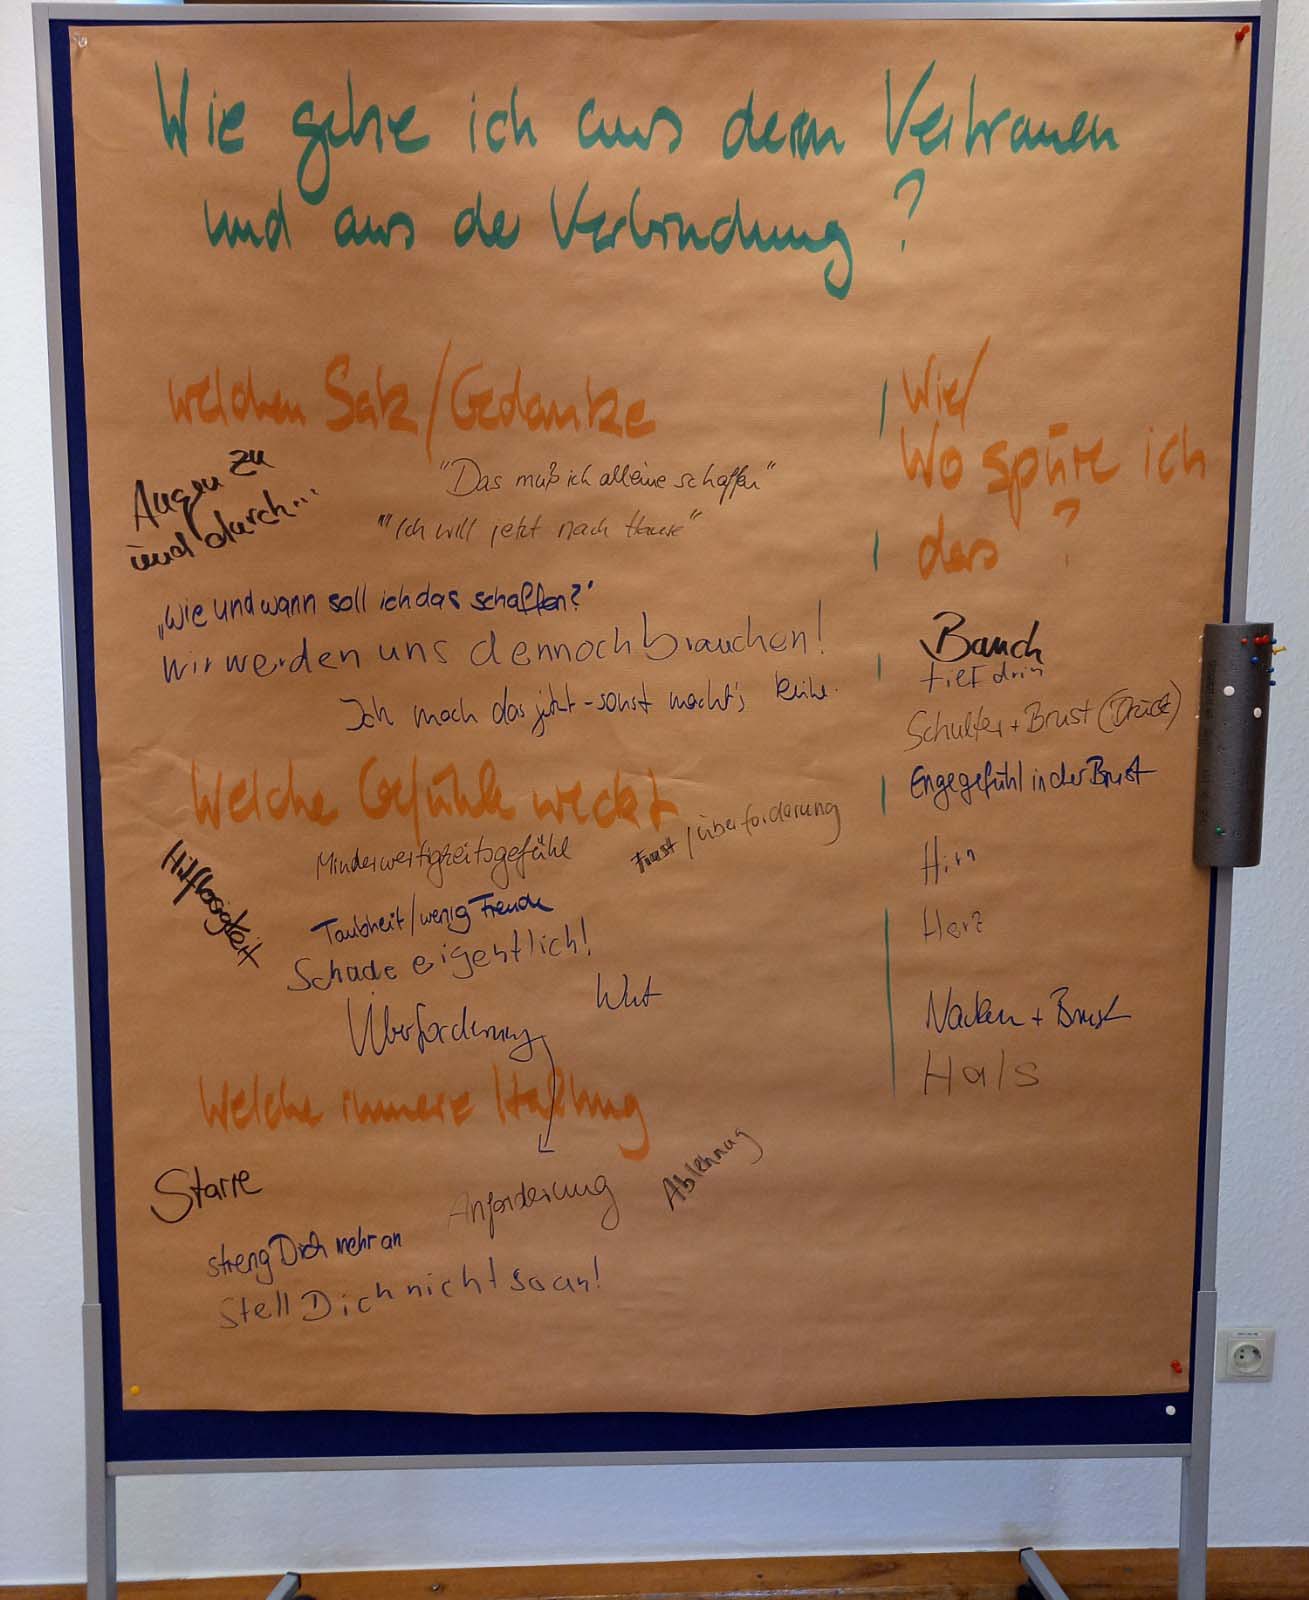 Wie gehe ich aus dem Vertrauen
und aus der Verbindung?
welchen Satz/Gedanke
Augen zu
und durch...
"Das muß ich alleine schaffen"
"Ich will jetzt nach Hause"
„Wie und wann soll ich das schaffen?"
Wir werden uns dennoch brauchen!
Ich mach das jetzt - sonst macht's keiner.
Welche Gefühle weckt
Hilflosigkeit
Minderwertigkeitsgefühl
Frust/Überforderung
Taubheit/wenig Freude
Schade eigentlich!
Wut
Überforderung
Welche innere Haltung
Starre
Anforderung
Ablehnung
streng Dich mehr an
Stell Dich nicht so an!
Wie/
Wo spüre ich
das?
Bauch
tief drin
Schulter + Brust (Druck)
Engegefühl in der Brust
Hirn
Herz
Nacken + Brust
Hals